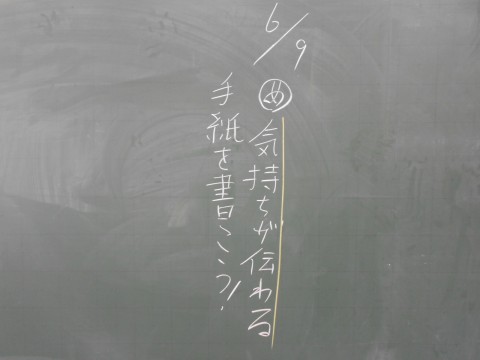 6/9
㋱気持ちが伝わる
手紙を書こう!